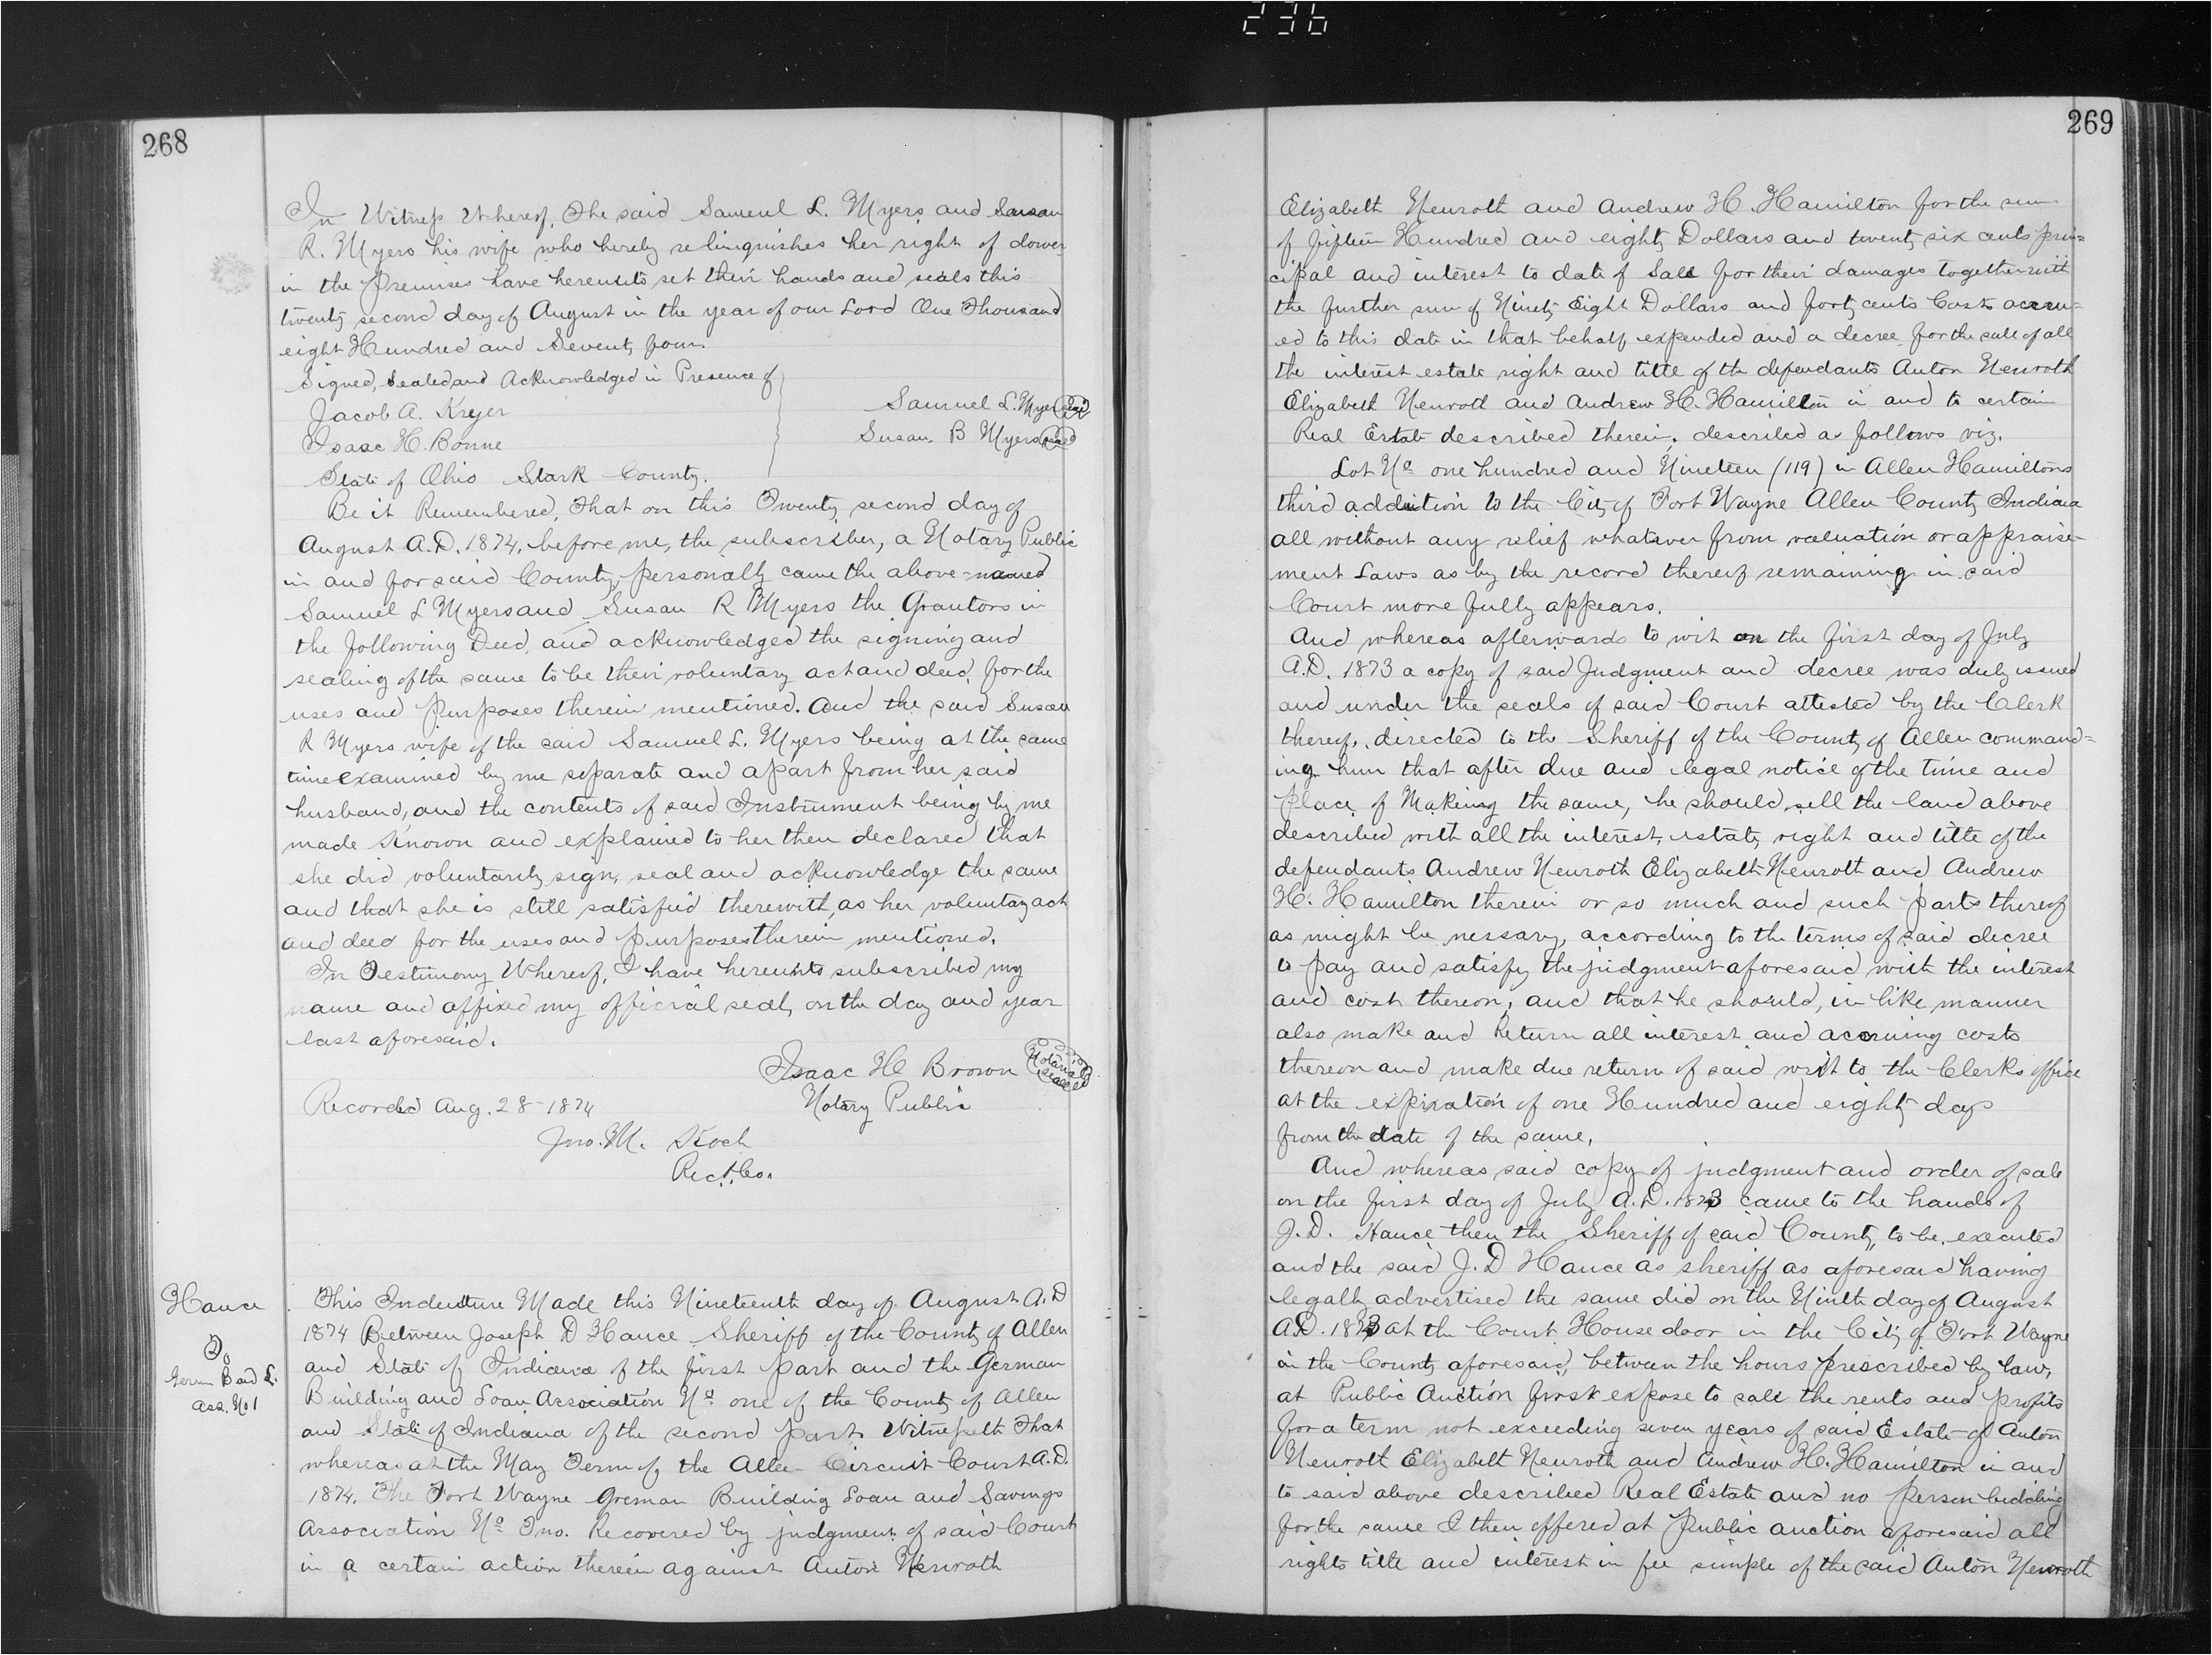 236
268
In Witness Whereof, The said Samuel L. Myers and Susan
R. Myers his wife who hereby relinquishes her right of dower
in the Premises have hereunto set their hands and seals this
twenty second day of August in the year of our Lord One Thousand
eight Hundred and Seventy four.
Signed, Sealed and Acknowledged in Presence of
Jacob A. Kreyer
Samuel L. Myers (seal)
Isaac H. Bonne
Susan B Myers (seal)
State of Ohio Stark County.
Be it Remembered, That on this Twenty second day of
August A.D. 1874, before me, the subscriber, a Notary Public
in and for said County, personally came the above-named
Samuel L Myers and Susan R Myers the Grantors in
the following Deed, and acknowledged the signing and
sealing of the same to be their voluntary act and deed, for the
uses and purposes therein mentioned. And the said Susan
R Myers wife of the said Samuel L. Myers being at the same
time examined by me separate and apart from her said
husband, and the contents of said Instrument being by me
made known and explained to her then declared that
she did voluntarily sign, seal and acknowledge the same
and that she is still satisfied therewith, as her voluntary act
and deed for the uses and purposes therein mentioned.
In Testimony Whereof, I have hereunto subscribed my
name and affixed my official seal, on the day and year
last aforesaid.
Isaac H Brown (Notarial seal)
Recorded Aug. 28-1874
Notary Public
Jno. M. Koch
Rec. A. Co.
Hance
To
Germ B and L.
Ass. No 1
This Indenture Made this Nineteenth day of August A.D
1874 Between Joseph D Hance Sheriff of the County of Allen
and State of Indiana of the first part and the German
Building and Loan Association No. one of the County of Allen
and State of Indiana of the second part. Witnesseth That
whereas at the May Term of the Allen Circuit Court A.D.
1874. The Fort Wayne Greman Building Loan and Savings
Association No. Ino. Recovered by judgment of said Court
in a certain action therein against Anton Neuroth
269
Elizabeth Neuroth and Andrew H. Hamilton for the sum
of fifteen Hundred and eighty Dollars and twenty six cents prin=
cipal and interest to date of Sale for their damages together with
the further sum of Ninety Eight Dollars and forty cents Costs accru=
ed to this date in that behalf expended and a decree for the sale of all
the interest estate right and title of the defendants Anton Neuroth
Elizabeth Neuroth and Andrew H. Hamilton in and to certain
Real Estate described therein, described as follows viz.
Lot No. one hundred and Nineteen (119) in Allen Hamiltons
third addition to the City of Fort Wayne Allen County Indiana
all without any relief whatever from valuation or appraise-
ment Laws as by the record thereof remaining in said
Court more fully appears.
And whereas afterwards to wit on the first day of July
A.D. 1873 a copy of said Judgment and decree was duly issued
and under the seals of said Court attested by the Clerk
thereof, directed to the Sheriff of the County of Allen command=
ing him that after due and legal notice of the time and
place of Making the same, he should, sell the land above
described with all the interest, estate, right and title of the
defendants Andrew Neuroth Elizabeth Neuroth and Andrew
H. Hamilton therein or so much and such parts thereof
as might be nessary, according to the terms of said decree
to pay and satisfy the judgment aforesaid with the interest
and cost thereon, and that he should, in like manner
also make and Return all interest and accruing costs
thereon and make due return of said writ to the Clerks office
at the expiration of one Hundred and eighty days
from the date of the same.
And whereas said copy of judgment and order of sale
on the first day of July A.D. 1873 came to the hands of
J.D. Hance then the Sheriff of said County, to be executed
and the said J.D Hance as sheriff as aforesaid having
legally advertised the same did on the Ninth day of August
A.D. 1873 at the Court House door in the City of Fort Wayne
in the County aforesaid, between the hours prescribed by law,
at Public Auction first expose to sale the rents and profits
for a term not exceeding seven years of said Estate of Anton
Neurott Elizabeth Neuroth and Andrew H. Hamilton in and
to said above described Real Estate and no person bidding
for the same I then offered at Public auction aforesaid all
rights title and interest in fee simple of the said Anton Neuroth